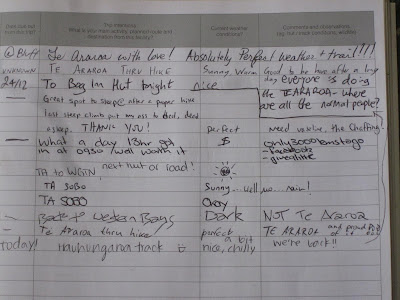 Date out
from this trip?
The Intentions
What is your main activity, planned route and destination from this facility?
Current weather conditions?
Comments and observations
(e.g. hut / track conditions, wildlife)
@ Bluff Te Araroa with love! Absolutely Perfect weather + trail!!!!
unknown TE ARAROA THRU HIKE Sunny Warm Good to be here after a long day,
24/12 To Bog Inn Hut tonight nice everyone is doing the TE ARAROA - where are all the normal people?
Great spot to stop after a
last steep climb put my ass to bed, dead
asleep. THANK YOU! perfect Need vaseline, the Chaffing.
What a day 13hr got $ only 3000kms to go
in at 0930 / well worth it - facebook
- givealittle
next hut or road!
TA to WGTN
TA SOBO Sunny... well no... rain!
TA SOBO Okay
Back to Western Bays Dark NOT Te Araroa
Te Araroa thru hike perfect TE ARAROA and proud of it
today! hauhungaroa track nice, a bit chilly we're back!!